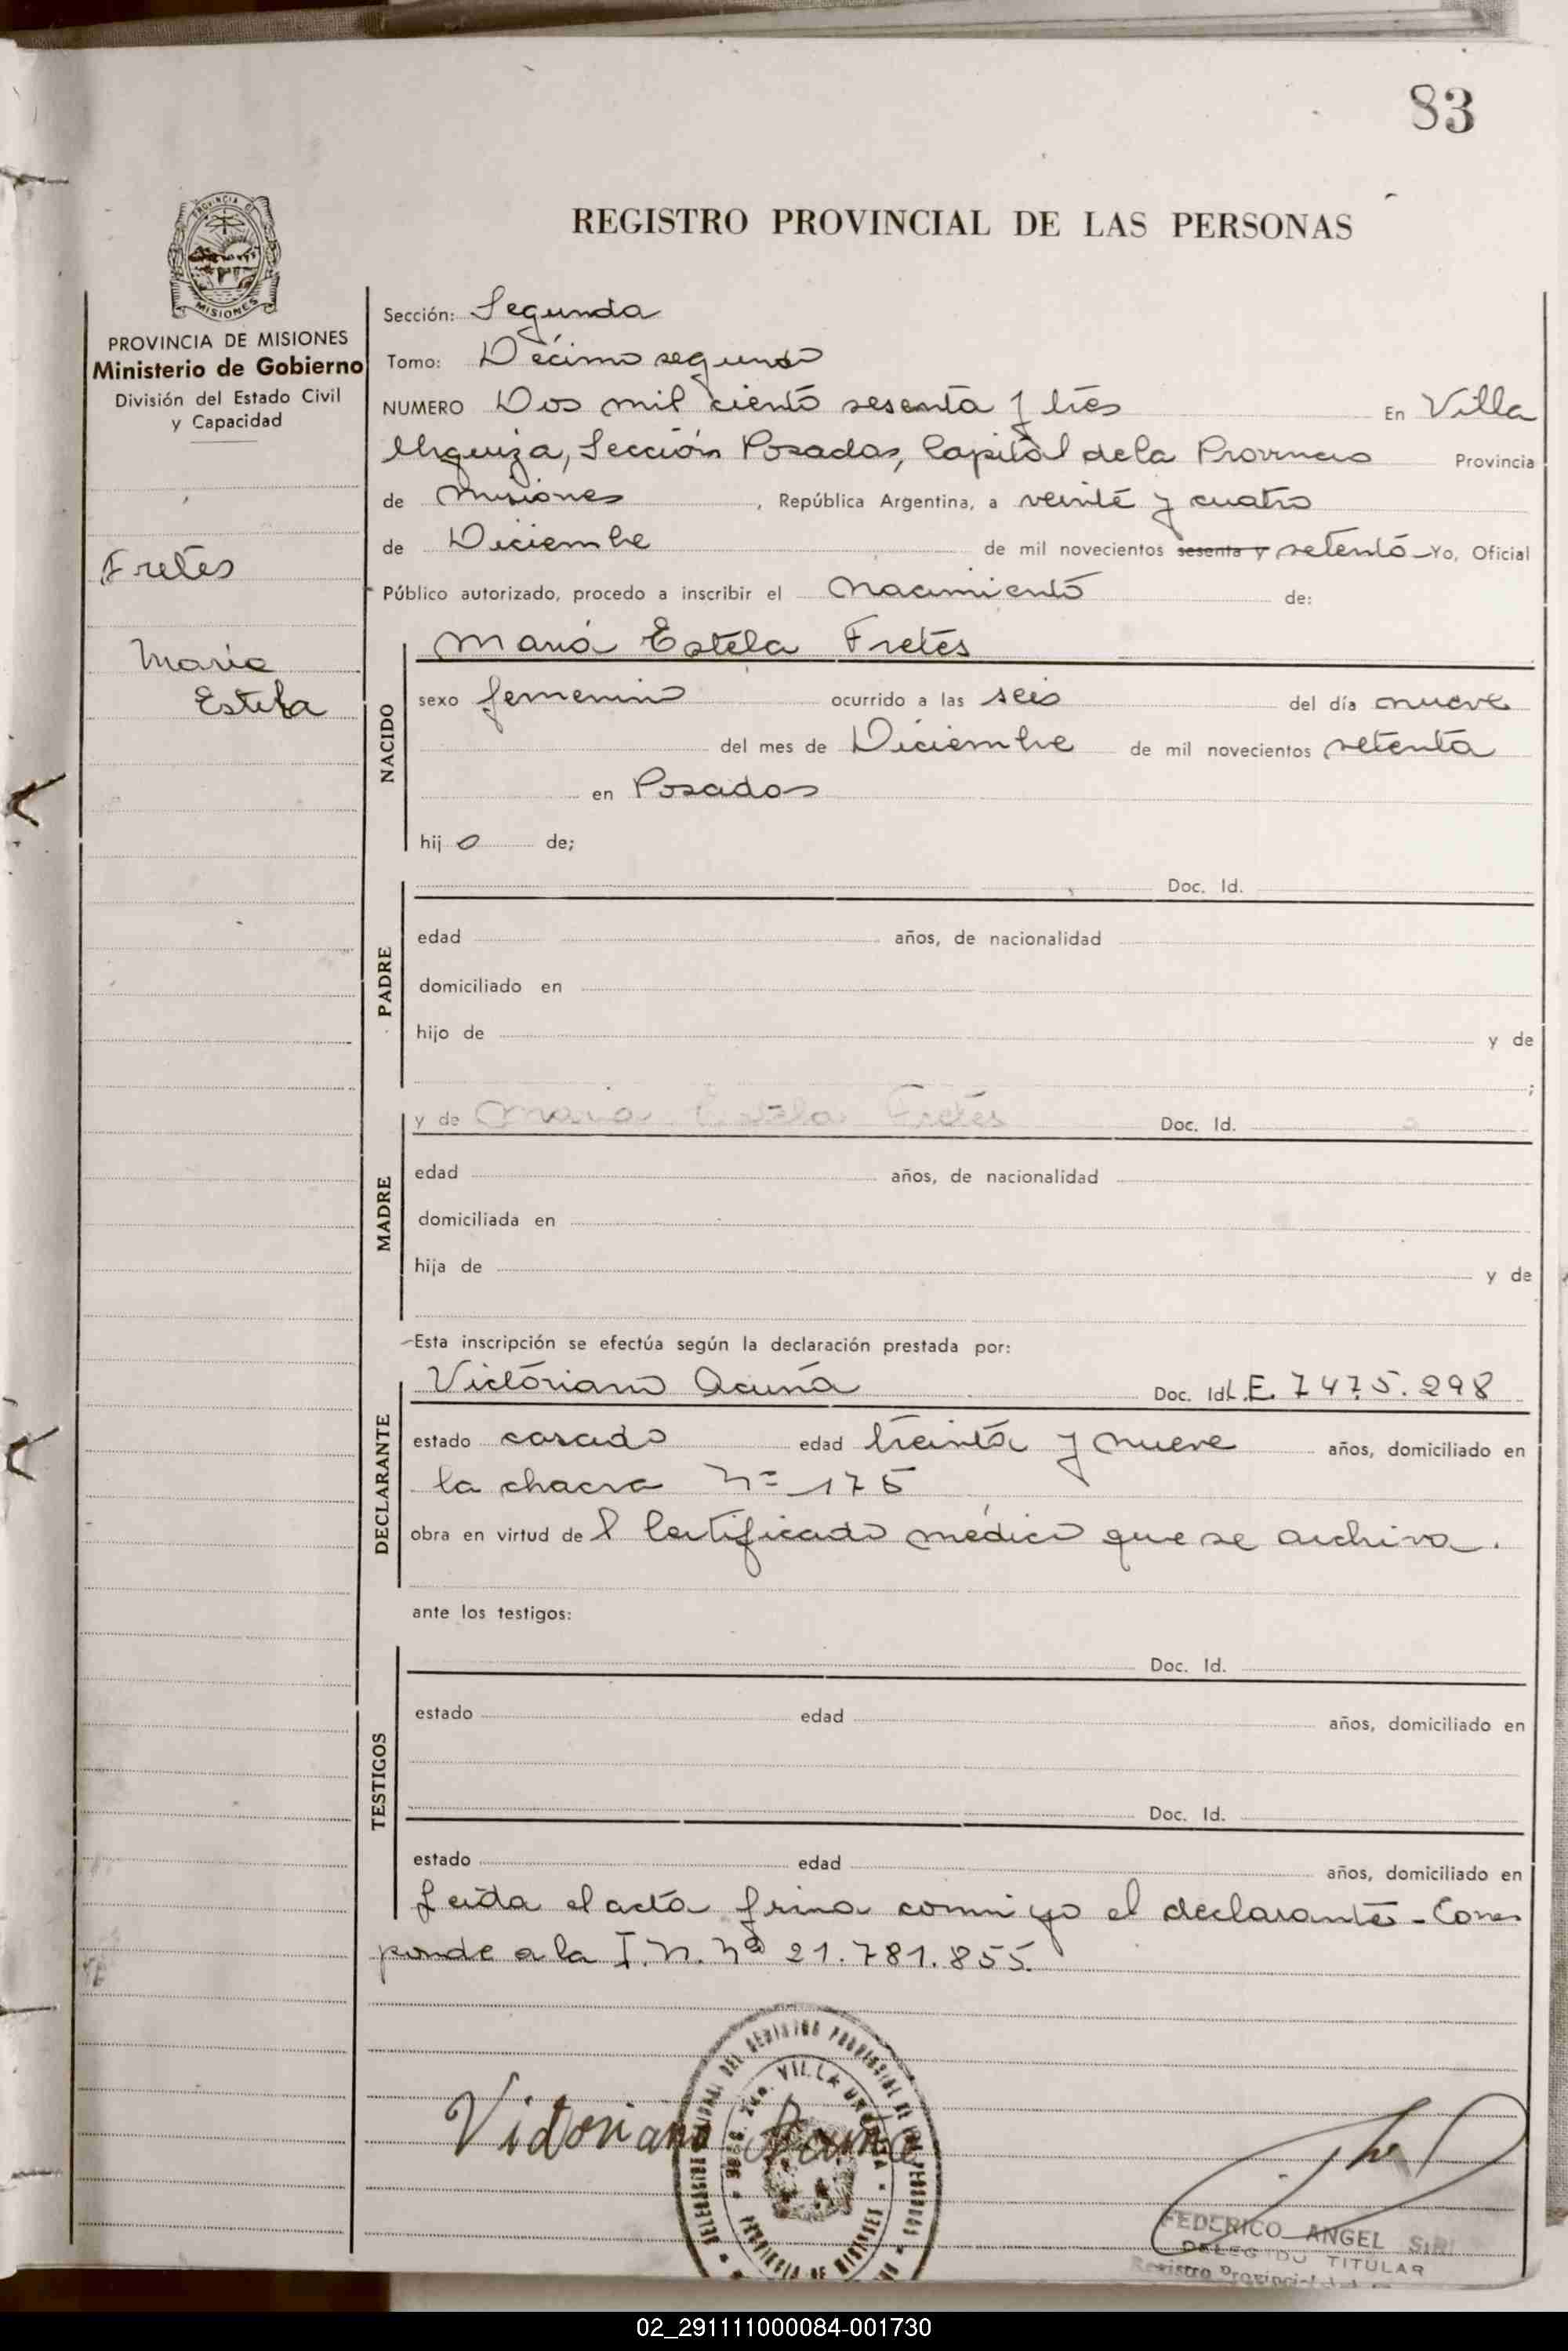 83
REGISTRO PROVINCIAL DE LAS PERSONAS
PROVINCIA DE MISIONES
Ministerio de Gobierno
División del Estado Civil
y Capacidad
Fretes
Maria
Estela
Sección: Segunda
Tomo: Décimo segundo
NUMERO Dos mil ciento sesenta y tres En Villa
Urquiza, Sección Posadas, Capital de la Provincia Provincia
de Misiones, República Argentina, a veinte y cuatro
de Diciembre de mil novecientos sesenta y setenta Yo, Oficial
Público autorizado, procedo a inscribir el Nacimiento de:
NACIDO
Maria Estela Fretes
sexo femenino ocurrido a las seis del día nueve
del mes de Diciembre de mil novecientos setenta
en Posadas
hij a de;
PADRE
Doc. Id.
edad años, de nacionalidad
domiciliado en
hijo de y de
;
MADRE
y de Maria Estela Fretes Doc. Id.
edad años, de nacionalidad
domiciliada en
hija de y de
Esta inscripción se efectúa según la declaración prestada por:
DECLARANTE
Victoriano Acuña Doc. Id. L.E. 7475.298
estado casado edad treinta y nueve años, domiciliado en
la chacra Nº 175
obra en virtud de l Certificado médico que se archiva.
ante los testigos:
TESTIGOS
Doc. Id.
estado edad años, domiciliado en
Doc. Id.
estado edad años, domiciliado en
Leida el acta firma conmigo el declarante - Corres
ponde a la I.N. Nº 21.781.855.
Victoriano Acuña
VILLA URQUIZA
PROVINCIA DE MISIONES
FEDERICO ANGEL
DELEGADO TITULAR
Registro Provincial
02_291111000084-001730